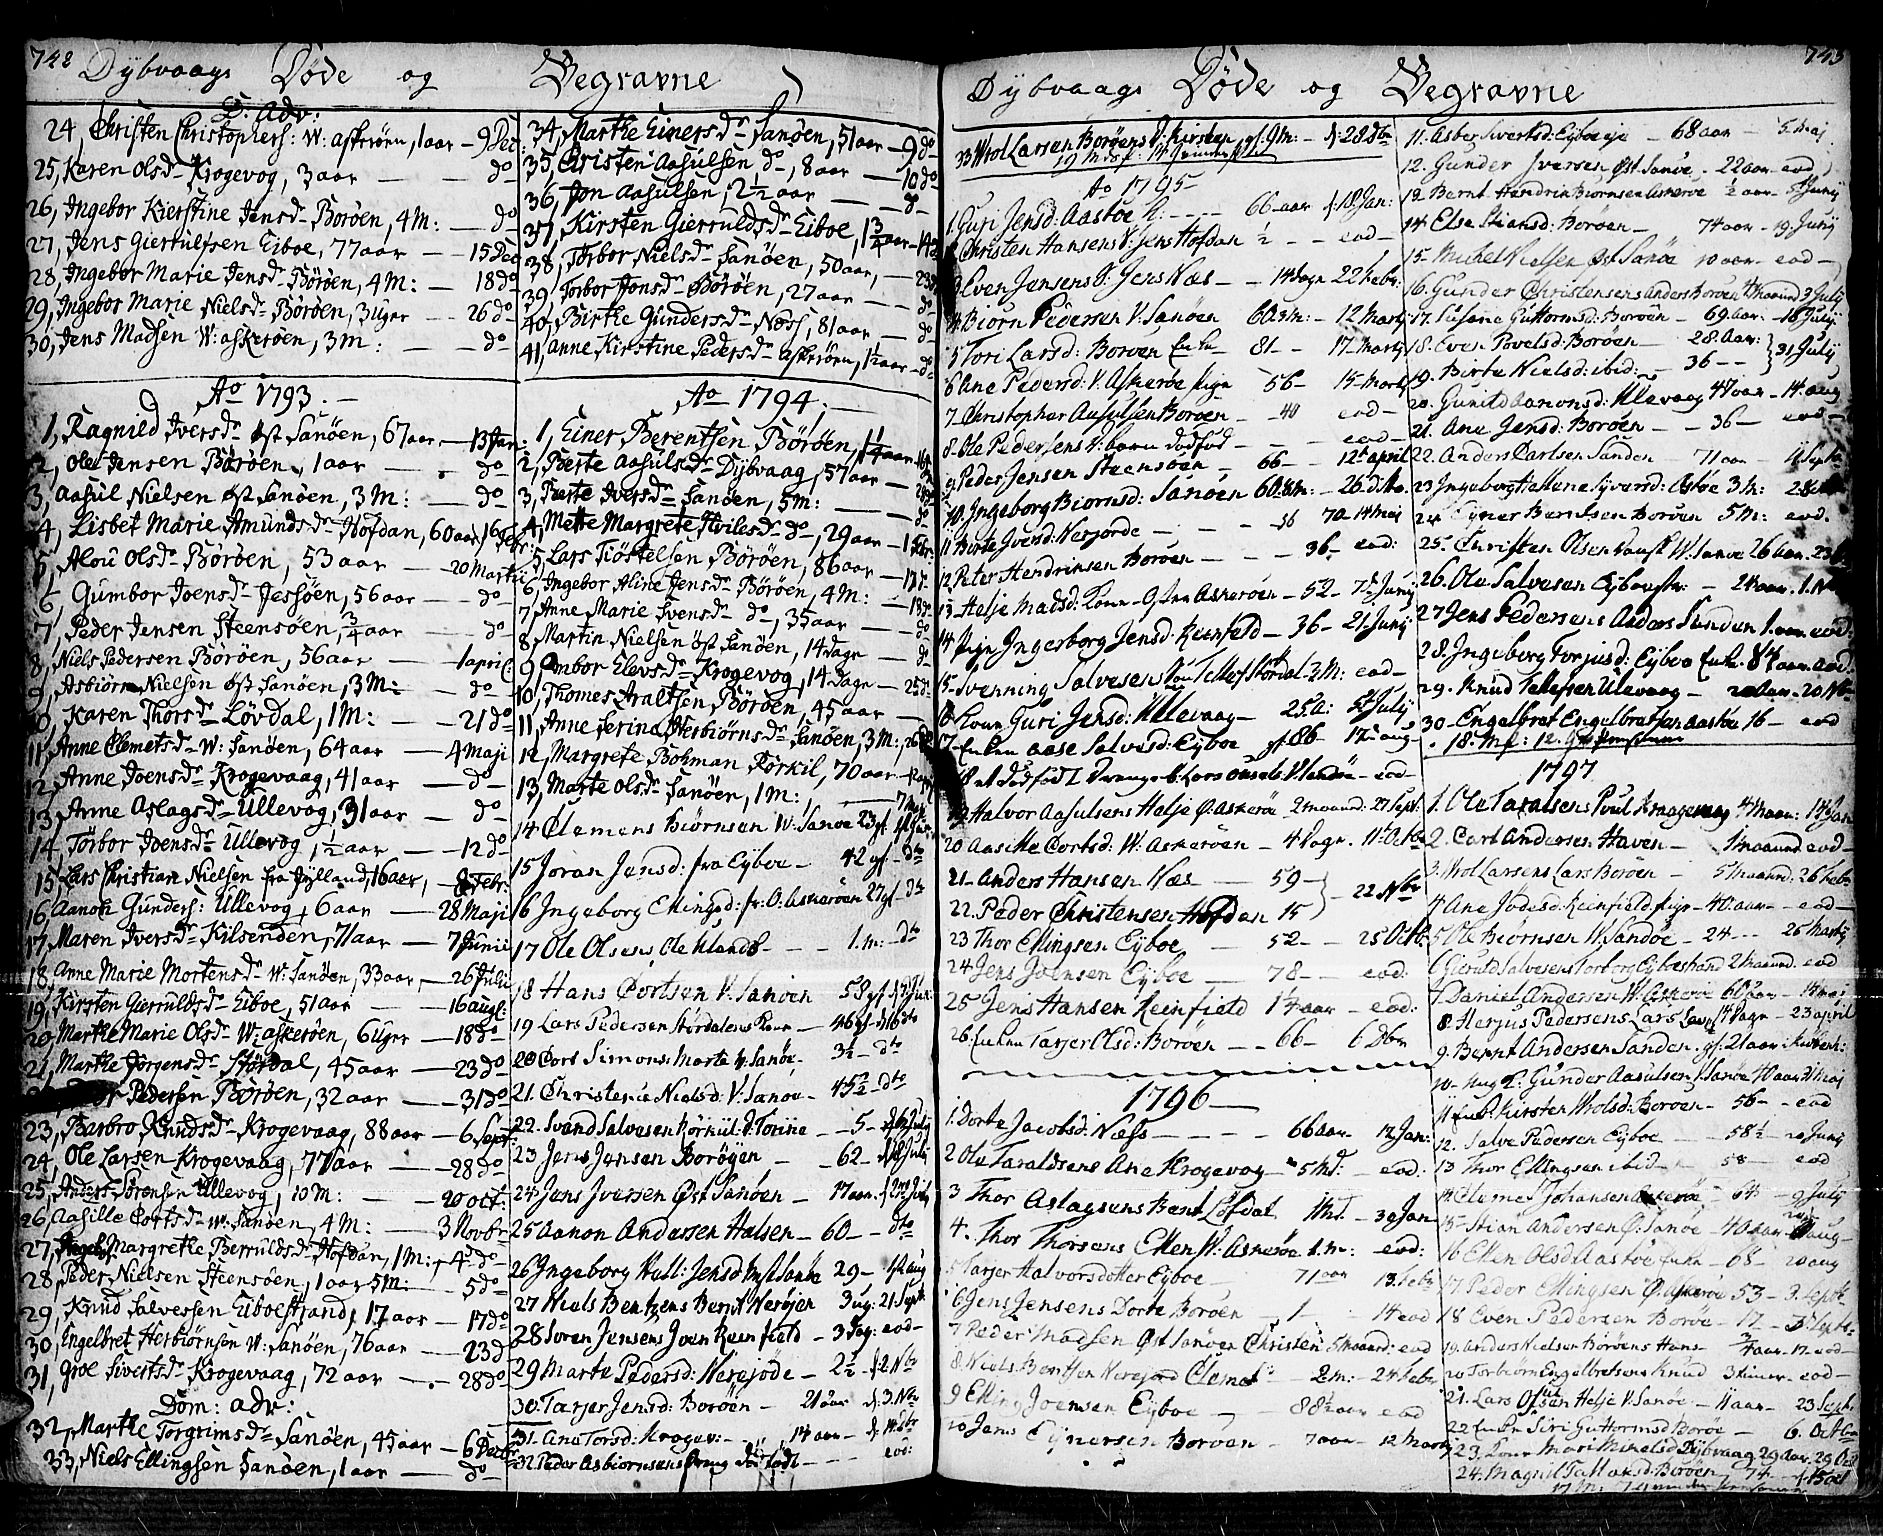 742 Dybvaags Døde og Begravne
D: adv:
24, Christen Christophers: W: askerøen, 1 aar - 9 Dec:
25, Karen Olsd- Krogevog, 3 aar - do
26, Ingebor Kierstine Jensd- Borøen, 4 M: - do
27, Jens Gierrulfsen Eiboe, 77 aar - 15 Dec
28, Ingebor Marie Jensd- Börøen, 4 M: - 18 do
29, Ingebor Marie Nielsd- Börøen, 3 uger - 26 do
30, Jens Madsen W: askerøen, 3 M: - do
Ao 1793.
1, Ragnild Iversd- øst Sanøen, 67 aar - 13 Jan:
2, Ole Jensen Börøen, 1 aar - do
3, Aasul Nielsen øst Sanøen, 3 M: - do
4, Lisbet Marie Amundsd- Hofdan, 60 aar, 16 Febr:
5, Alou Olsd- Börøen, 53 aar - 20 Martii
6, Gumbor Joensd- Jessøen, 56 aar - do
7, Peder Jensen Steensøen, 3/4 aar - do
8, Niels Pedersen Börøen, 56 aar - 1 april:
9, Asbiørn Nielsen øst Sanøen, 3 M: - do
10, Karen Thorsd- Lövdal, 1 M: - 21 do
11, Anne Clemetsd- W: Sanøen, 64 aar - 4 Maji
12, Anne Joensd- Krogevaag, 41 aar - do
13, Anne Aslagsd- Ullevog, 31 aar - do
14, Törbor Joensd- Ullevog, 1½ aar - 12 do
15, Lars Christian Nielsen fra Jylland, 16 aar, - Febr:
16, Aanon Gunders: Ullevog, 6 aar - 28 Maji
17, Maren Iversd- Kilsenden, 71 aar - 7 Junii
18, Anne Marie Mortensd- W: Sanøen, 33 aar, - 26 Julii
19, Kirsten Gierruldsd- Eiboe, 51 aar - 16 augl:
20, Marthe Marie Olsd- W: askerøen, 6 Uger - 18 do
21, Marthe Jørgensd- Stördal, 45 aar - 23 do
Pedersen Börøen, 32 aar - 31 do
23, Barbro Knudsd- Krogevaag, 88 aar - 6 Sept:
24, Ole Larsen Krogevaag, 77 aar - 28 do
25, Anders Sörensen Ullevog, 10 M: - 20 oct:
26, Aasille Cortsd- W: Sanøen, 4 M: - 3 Novbr
27, Margrethe Berruldsd- Hofdan, 1 M:, - 4 do
28, Peder Nielsen Steensøen, 1 aar 5 M: - 5 do
29, Knud Salvessen Eiboestrand, 17 aar - 17 do
30, Engelbret Herbiørnsen W: Sanøen, 76 aar - 23 d
31, Groe Sivertsd- Krogevaag, 72 aar - 28 do
Dom: adv:
32, Marthe Torgrimsd- Sanøen, 45 aar - 6 Decbr
33, Niels Ellingsen Sanøen, 1 aar - do
34, Marthe Einersd- Sanøen, 51 aar - 9 do
35, Christen Aasulsen do, 8 aar - 10 do
36, Jon Aasulsen, 2½ aar - d-
37, Kirsten Gierruldsd- Eiboe, 1 3/4 aar - 14
38, Törbor Nielsd- Sanøen, 50 aar, - 23 d
39, Torbor Jonsd- Börøen, 27 aar - do
40, Birthe Gundersd- Næss, 81 aar - do
41, Anne Kirstine Pedersd- askerøen, 1½ aar - do
Ao 1794;
1, Einer Berentsen Börøen, 1 1/4 aar
2, Berte Aasulsd- Dybvaag, 57 aar
3, Terte Iversd- Sanøen, 5 M: - do
4, Mette Margrete Hvilesd- do, 29 aar - 1 Febr:
5, Lars Tiöstelsen Börøen, 86 aar - 11
6, Ingebor Aline Jensd- Börøen, 4 M: - 18
7, Anne Marie Svensd- do, 35 aar - do
8, Martin Nielsen øst Sanøen, 14 Dage - d
9, Ombor Elevsd- Krogevog, 14 Dage - 25 d
10, Thomes Araltsen Börøen, 45 aar
11, Anne Serina Herbiørnsd- Sanøen, 3 M:, 26
12, Margrete Bohman Körkil, 70 aar
13, Marte Olsd- Sanøen, 1 M:, - 7
14 Clemens Biørnsen W: Sanøe 23
15 Joran Jensd: fra Eyboe - 42 - dto
16 Ingeborg Ellingsd: fr: O: Askerøen 27
17 Ole Olsens Ole Klands - 1. m: - dto
18 Hans Cortsen V: Sanøen 58
19 Lars Pedersen Stördalens Kone - 46 - 16 dto
20 Cort Simons: Marte V: Sanøe - 3½ - dto
21. Christena Nielsd: V: Sanøe - 45½ - dto
22. Svend Salvesen Körkiil d: Torine - 5 - July
23 Jens Jensen Borøyen - 62 - July
24 Jens Iversen Øst Sanøen - 17 aar. July
25 Aanon Andersen Halsen - 60 - dto
26 Ingeborg Hall: Jensd Øst Sanøe 29 - aug
27 Niels Bentzens Bernt Nerøjen 3 ug: 21 Sept
28 Soren Jensens Joen Reenfield - 3 Dag: eod-
29 Marte Pedersd: Nerejøde - 2½ - 2 Nbr
30. Tarjer Jensd: Borøen - 21 aar 3. Nbr
31. Ane Torsd: Krogev: - 14 aar - 14 dbr
32. Peder Asbiornsens Dreng dødfødt - eod:
Dybvaags Døde og Begravne 743
33 Wrol Larsen Borøens D: Kirsten gl. 9 M: - 28 dbr
Ao 1795
1. Guri Jensd: Aasboe - 66 aar 18 Jan:
Christen Hansens V: Jens Hofdan ½ - eod-
3 Even Jensens V: Jens Næs - 14 dagn 22 febr:
4. Biorn Pedersen V: Sanøen 60 - 12 Marty
5 Tori Larsd: Borøen Enke 81 - 17 Marty
6 Ane Pedersd: V: Askerøe pige 56 - 15 Marty
7 Christopher Aasulsen Borøen - 40 eod-
8. Ole Pedersens V: barn dødfød - eod-
9. Peder Jensen Steensøen - 66 - 12t april
10. Ingeborg Biornsd: Sanøen 60 - 26 dito
11 Birte Iversd: Nerjorde - 56 14 Maj
12. Peter Hendrinsen Borøen - 36 - eod:
13 Helje Madsd: Kone Østre Askerøen - 52 - 7t Juny
14 Pige Ingerborg Jensd: Reenfeld - 36 - 21 Juny
15. Svenning Salvesens Søn Tellef Stördal 2 M: eod-
16 Kone Guri Jensd: Ullevaag - 25 A: 5t July
17 Enken Aase Salvesd: Eyboe gl 86 - 17 aug
19 Halvor Aasulsens Helje Ø: Askerøe 2 maaned: 27 Sept:
20 Aasille Cortsd: W: Askerøen - 4 dagr. 11t Octbr
21. Anders Hansen Næs - 59 - 22 Nbr
22. Peder Christensen Hofdan 15
23 Thor Ellingsen Eyboe - 52 - 25 Octb:
24 Jens Joensen Eyboe - 78 - eod:
25 Jens Hansen Reenfield 14 aar - eod:
26. Enken Tarjer Olsd: Borøen - 66 - 6 Dbr
1796
1. Dorte Jacobsd: Næss - 66 aar 12 Jan:
2. Ole Taraldsens Ane Krogevog - 5 Md: - eod:
3 Thor Aslagsens Barn Löfdal 1 Md. - 30 Jan
4. Thor Thorsens Ellen W: Askerøe 1. m: - eod:
5 Tarjer Halvorsdotter Eyboe - 71 aar 13. febr
6 Jens Jensens Dorte Borøen - 1 - 14 eod
7 Peder Madsen Øst Sanøen Christen 5 Maaned: eod
8. Niels Bentsen Nerejord Clemet - 2 m: - 24 febr
9 Elling Joensen Eyboe - 88½ aar eod
10 Jens Eynersen Borøen - 7 aar - 12 Marty
11. Asber Sivertsd: Eyboeeje - 68 aar - 5 Maj
12. Gunder Iversen Øst Sanøe - 22 aar - eod:
13. Bernt Hendrin Biornsen Askerøe ½ aar - 5t Juny
14. Else Stiansd: Borøen - 74 aar - 19 Juny
15. Michel Nielsen Øst Sanøe 10 aar - eod-
16. Gunder Christensens Anders Borøen 4 Maaned 3 July
17. Susane Guttormsd: Borøen - 69 aar: - 10 July
18. Even Povelsd: Borøen - 28. Aar: 31 July
19. Birte Nielsd: ibid: - 36 -
20. Gunild Aanonsd: Ullevaag 47 aar - 14. aug
21. Ane Jensd: Borøen - 36 - eod-
22. Anders Carlsen Sanden 71 aar - 4 Sept
23 Ingeborg Hellene Syversd: Østøe 3 M:
24 Eyner Berntsen Borøen 5 M: eod.
25. Christen Olsen W: Sanøe 26 aar. 23
26. Ole Salvesen Eyboestr: - 24 aar. 1. N
27 Jens Pedersens Anders Sunden 1. aar. eod:
28. Ingeborg Torjusd: Eyboe Enke. 84 aar. eod:
29. Knud Tellefsen Ulevaag - 20 Nbr
30. Engelbret Engelbretsen Aasbøe 16 - eod
1797
1. Ole Taralsens Poul Kraagevaag 4 Maan: Jan
2. Carl Andersen Haven - 1 Maaned eod-
3. Wrol Larsens Lars Borøen - 5 Maaned: 26 febr
4 Ane Jødesd: Reenfield pige - 40 aar - eod-
5 Ole Biornsen W: Sandøe - 24 - 26 Marty
6 Gierulf Salvesens Torborg Eyboestrand 2 Maaned. eod
7. Daniel Andersen W: Askerøe 60 aar - Maj
8. Herjus Pedersens Lars 14 dagr - 23 april
9. Bernt Andersen Sanden gl: 21 aar
10. Gunder Aasulsen V: Sanøe 40 aar Maj
11 Kirsten Wrolsd: Borøen - 56 - eod
12. Salve Pedersen Eyboe - 58½ - 20 Juny
13 Thor Ellingsen ibid - 58 - eod
14. Clemet Johansen Askerøe - 64 9 July
15. Stian Andersen Ø: Sanøe - 40 aar aug
16 Ellen Olsd Aasboe Enke - 68 - 20 aug
17 Peder Ellingsen Ø: Askerøe 53 - 3. Septbr
18 Even Pedersen Borøe - 17 - Septbr
19. Anders Nielsen Borøens Hans 3/4 aar - 17 - eod-
20 Torbiørn Engelbretsens Knud 3 timer - eod-
21. Lars Olsens Helje V: Sanøe - 11 aar - 23 Septbr
22 Enken Siri Guttormsd Borøe - 6. Octbr
23. Kone Mari Michelsd Dybvaag 29 aar. 29 Oct
24. Magnil Borøen 74 -